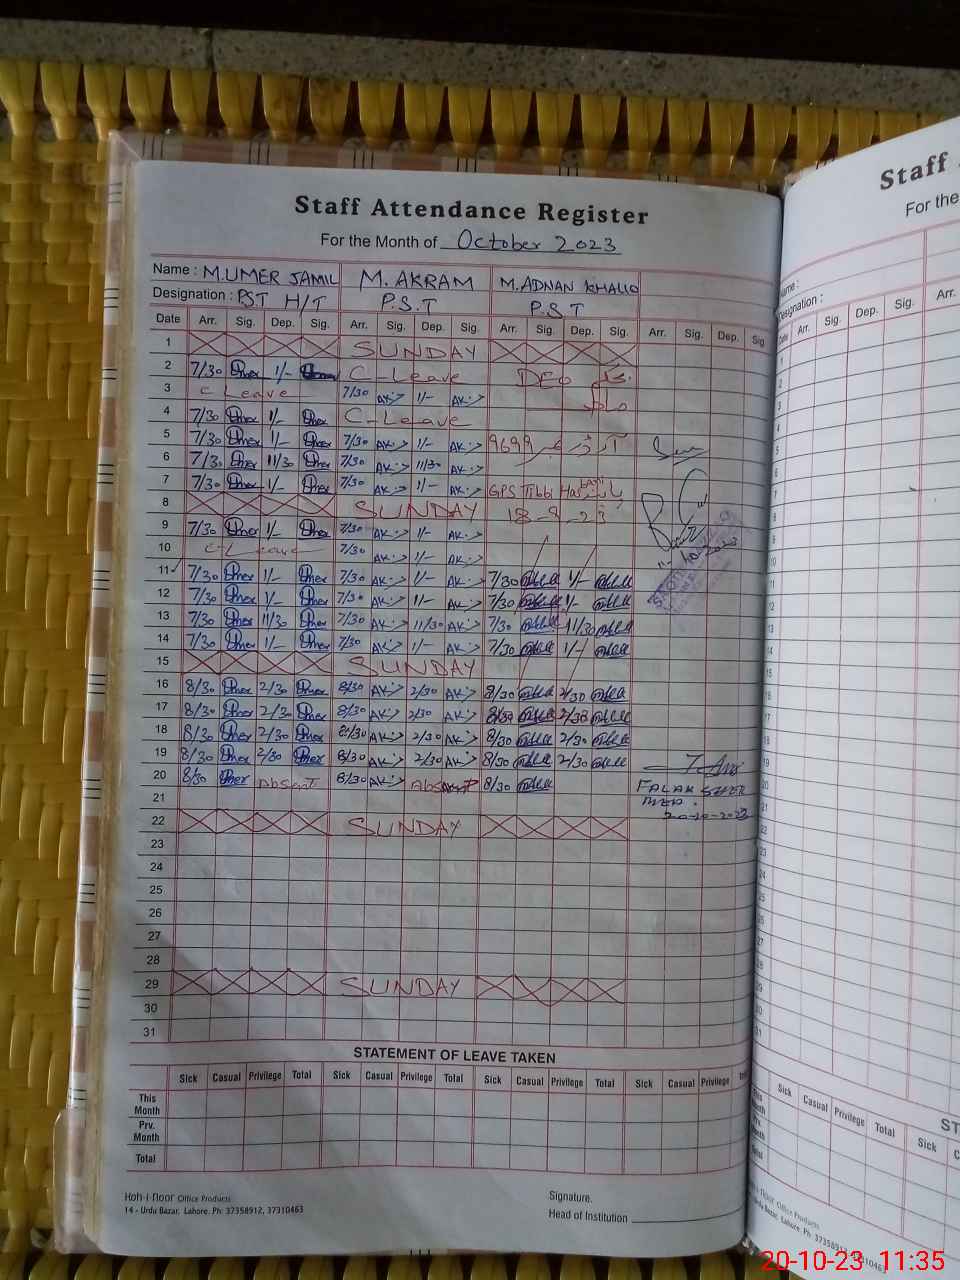 Staff Attendance Register
For the Month of October 2023
Name : M.UMER JAMIL M. AKRAM M. ADNAN KHALIQ
Designation : PST H/T P.S.T P.S.T
Date Arr. Sig. Dep. Sig. Arr. Sig. Dep. Sig. Arr. Sig. Dep. Sig. Arr. Sig. Dep. Sig
1 SUNDAY
2 7/30 Umer 1/- C-Leave DEO بحکم
3 C Leave 7/30 AK 1/- AK
4 7/30 Umer 1/- Umer C-Leave
5 7/30 Umer 1/- Umer 7/30 AK 1/- AK آرڈر نمبر ٩٦٩٩
6 7/30 Umer 11/30 Umer 7/30 AK 11/30 AK
7 7/30 Umer 1/- Umer 7/30 AK 1/- AK GPS Tibbi
8 SUNDAY 18-9-23
9 7/30 Umer 1/- Umer 7/30 AK 1/- AK
10 C-Leave 7/30 AK 1/- AK
11 7/30 Umer 1/- Umer 7/30 AK 1/- AK 7/30 1/-
12 7/30 Umer 1/- Umer 7/30 AK 1/- AK 7/30 1/-
13 7/30 Umer 11/30 Umer 7/30 AK 11/30 AK 7/30 11/30
14 7/30 Umer 1/- Umer 7/30 AK 1/- AK 7/30 1/-
15 SUNDAY
16 8/30 Umer 2/30 Umer 8/30 AK 2/30 AK 8/30 2/30
17 8/30 Umer 2/30 Umer 8/30 AK 2/30 AK 8/30 2/30
18 8/30 Umer 2/30 Umer 8/30 AK 2/30 AK 8/30 2/30
19 8/30 Umer 2/30 Umer 8/30 AK 2/30 AK 8/30 2/30
20 8/30 Umer Absent 8/30 AK Absent 8/30
FALAK SHER
20-10-2023
21
22 SUNDAY
23
24
25
26
27
28
29 SUNDAY
30
31
STATEMENT OF LEAVE TAKEN
Sick Casual Privilege Total Sick Casual Privilege Total Sick Casual Privilege Total Sick Casual Privilege
This Month
Prv. Month
Total
Koh-i-noor Office Products
14 - Urdu Bazar, Lahore. Ph: 37358912, 37310463
Signature.
Head of Institution
Staff
For the
Name :
Designation :
Date Arr. Sig. Dep. Sig. Arr.
This Month
Sick Casual Privilege Total Sick
20-10-23 11:35